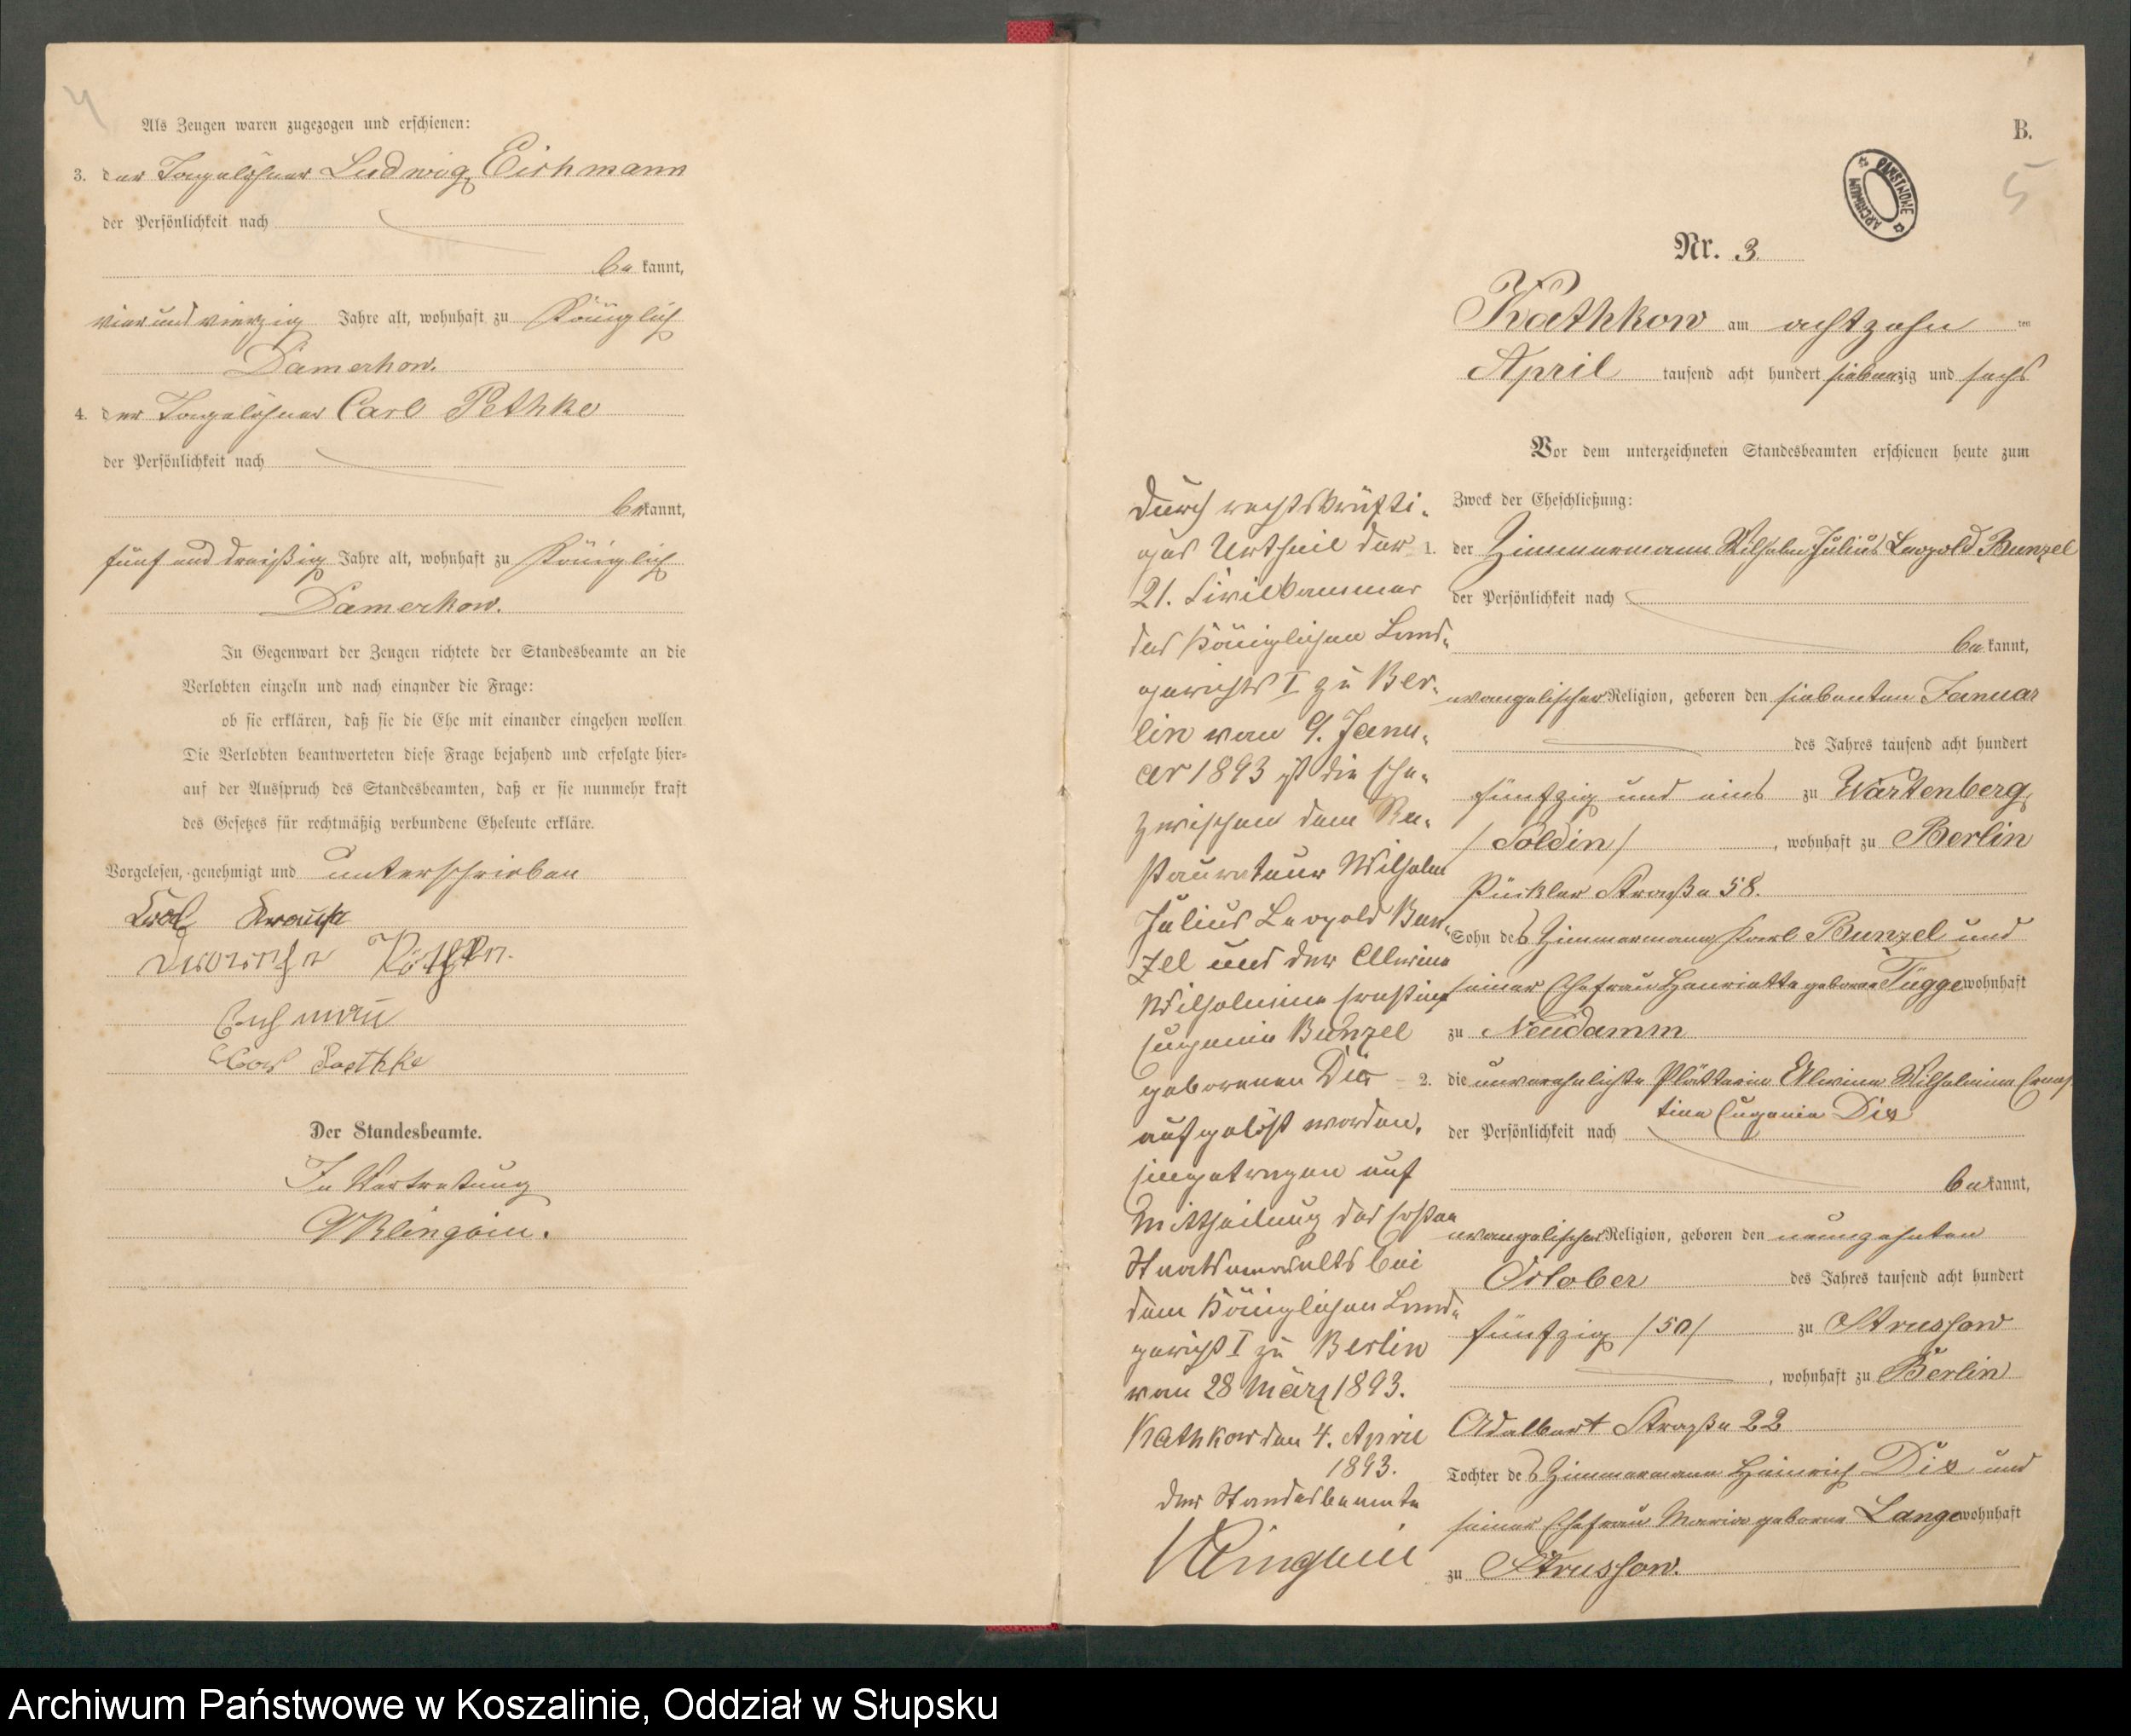 4
Als Zeugen waren zugezogen und erschienen:
3. der Tagelöhner Ludwig Eichmann
der Persönlichkeit nach
be kannt,
vier und vierzig Jahre alt, wohnhaft zu Königlich
Damerkow.
4. der Tagelöhner Carl Pethke
der Persönlichkeit nach
be kannt,
fünf und dreißig Jahre alt, wohnhaft zu Königlich
Damerkow.
In Gegenwart der Zeugen richtete der Standesbeamte an die
Verlobten einzeln und nach einander die Frage:
ob sie erklären, daß sie die Ehe mit einander eingehen wollen
Die Verlobten beantworteten diese Frage bejahend und erfolgte hier=
auf der Ausspruch des Standesbeamten, daß er sie nunmehr kraft
des Gesetzes für rechtmäßig verbundene Eheleute erkläre.
Vorgelesen, genehmigt und unterschrieben
Der Standesbeamte.
In Vertretung
Klingbeil.
B.
5
ARCHIWUM PAŃSTWOWE
Nr. 3.
Kathkow am achtzehn ten
April tausend acht hundert siebenzig und sechs
Vor dem unterzeichneten Standesbeamten erschienen heute zum
Zweck der Eheschließung:
1. der Zimmermann Wilhelm Julius Leopold Bunzel
der Persönlichkeit nach
be kannt,
evangelischer Religion, geboren den siebenten Januar
des Jahres tausend acht hundert
fünfzig und eins zu Wartenberg
/ Soldin / , wohnhaft zu Berlin
Pückler Straße 58.
Sohn des Zimmermann Karl Bunzel und
seiner Ehefrau Henriette geborene Tügge wohnhaft
zu Neudamm
2. die unverehelichte Plätterin Alwine Wilhelmine Ernes
tine Eugenie Dix
der Persönlichkeit nach
be kannt,
evangelischer Religion, geboren den neunzehnten
October des Jahres tausend acht hundert
fünfzig /50/ zu Strussow
, wohnhaft zu Berlin
Adalbert Straße 22
Tochter des Zimmermann Heinrich Dix und
seiner Ehefrau Marie geborne Lange wohnhaft
zu Strussow.
Durch rechtskräfti=
ges Urtheil der
21. Civilkammer
des Königlichen Land=
gerichts I zu Ber=
lin vom 9. Janu=
ar 1893 ist die Ehe
zwischen dem Re=
staurateur Wilhelm
Julius Leopold Bun=
zel und der Alwine
Wilhelmine Ernestine
Eugenie Bunzel
geborenen Dix
aufgelöst worden.
Eingetragen auf
Mittheilung des Ersten
Staatsanwalts bei
dem Königlichen Land=
gericht I zu Berlin
vom 28 März 1893.
Kathkow den 4. April
1893.
Der Standesbeamte
Klingbeil
Archiwum Państwowe w Koszalinie, Oddział w Słupsku